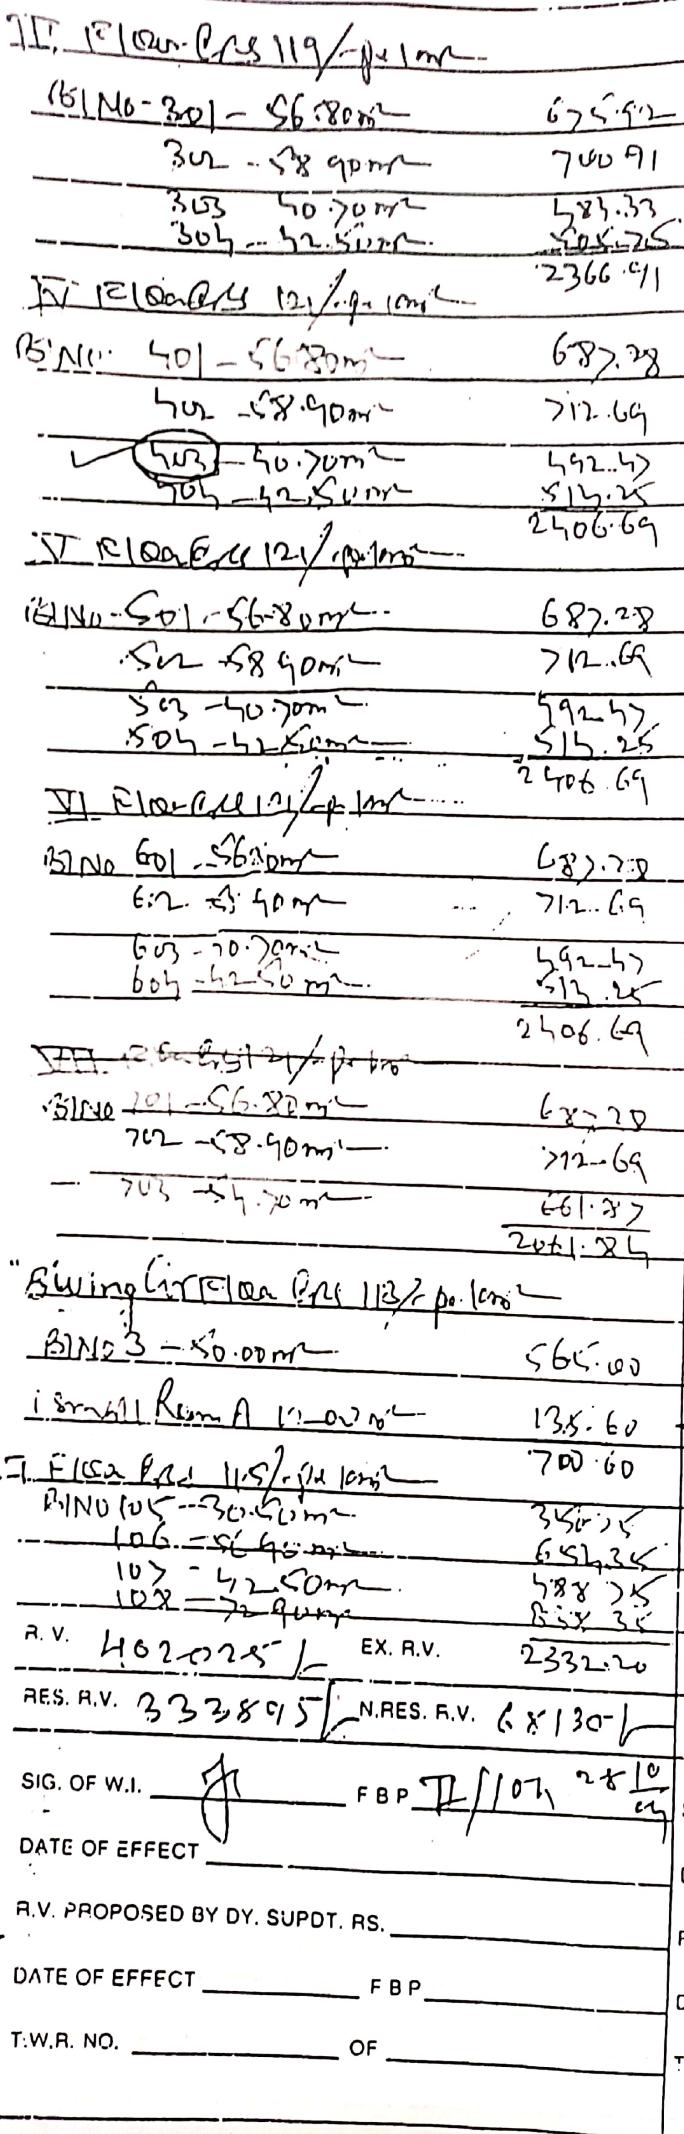 III Floor @ Rs 119/- per 1m²
Bl No - 301 - 56.80m² 675.92
302 - 58.90m² 700.91
303 40.70m² 484.33
304 - 42.50m² 505.75
2366.91
IV Floor @ Rs 121/- per 1m²
Bl No. 401 - 56.80m² 687.28
402 - 58.90m² 712.69
403 - 40.70m² 492.47
404 - 42.50m² 514.25
2406.69
V Floor @ Rs 121/- per 1m²
Bl No - 501 - 56.80m² 687.28
502 - 58.90m² 712.69
503 - 40.70m² 492.47
504 - 42.50m² 514.25
2406.69
VI Floor @ Rs 121/- per 1m²
Bl No 601 - 56.80m² 687.28
602 58.90m² 712.69
603 - 40.70m² 492.47
604 - 42.50m² 514.25
2406.69
VII Floor @ Rs 121/- per 1m²
Bl No 701 - 56.80m² 687.28
702 - 58.90m² 712.69
703 - 54.70m² 661.87
2061.84
"B" Wing Gr Floor @ Rs 113/- per 1m²
Bl No 3 - 50.00m² 565.00
1 Small Room A 12.00m² 135.60
700.60
I Floor @ Rs 115/- per 1m²
Bl No 105 - 30.50m² 350.75
106 - 56.90m² 654.35
107 - 42.50m² 488.75
108 - 72.90m² 838.35
R.V. 402025/- EX. R.V. 2332.20
RES. R.V. 333895/- N.RES. R.V. 68130/-
SIG. OF W.I. F B P II/107 28/10/04
DATE OF EFFECT
R.V. PROPOSED BY DY. SUPDT. RS.
DATE OF EFFECT F B P
T.W.R. NO. OF